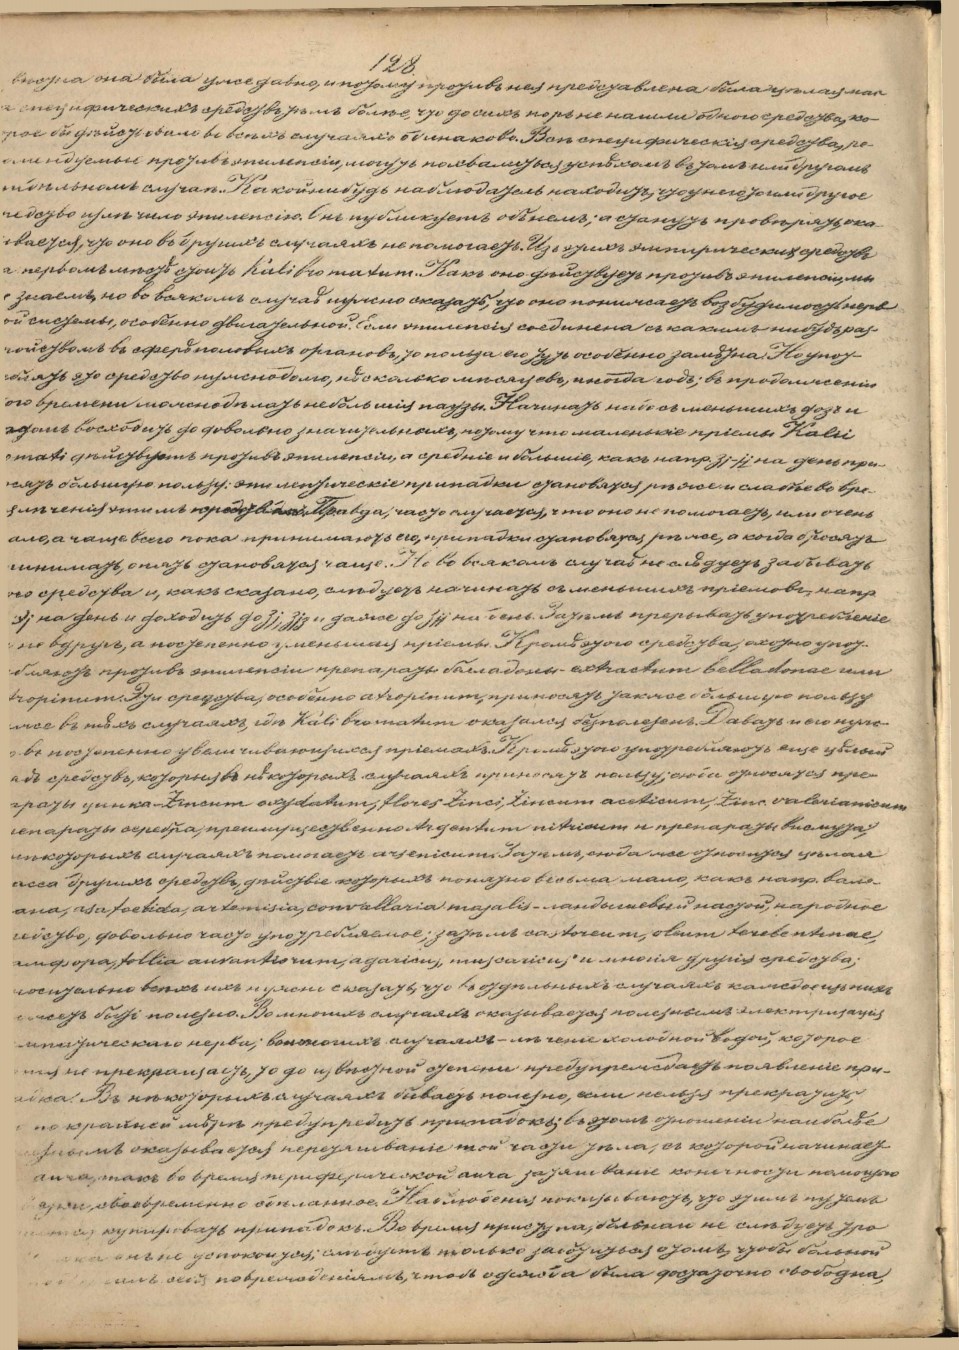 128
она была уже давно, и потому противъ нея представлена была цѣлая мас
специфическихъ средствъ, тѣмъ болѣе, что до сихъ поръ не нашли одного средства, ко-
рое бы дѣйствовало во всѣхъ случаяхъ одинаково. Всѣ специфическія средства, ре-
противъ эпилепсіи, могутъ похвалиться успѣхомъ въ томъ или другомъ
отдѣльномъ случаѣ. Какой нибудь наблюдатель находитъ, что у него то или другое
редство излѣчило эпилепсію. Онъ публикуетъ объ немъ; а станутъ провѣрять, ока-
ывается, что оно въ другихъ случаяхъ не помогаетъ. Изъ этихъ эмпирическихъ средствъ
а первомъ мѣстѣ стоитъ Kali bromatum. Какъ оно дѣйствуетъ противъ эпилепсіи, мы
е знаемъ, но во всякомъ случаѣ нужно сказать, что оно понижаетъ возбудимость нерв
ой системы, особенно двигательной. Если эпилепсія соединена съ какимъ нибудь раз-
тройствомъ въ сферѣ половыхъ органовъ, то польза его тутъ особенно замѣтна. Но упот-
блять это средство нужно долго, нѣсколько мѣсяцевъ, иногда годъ; въ продолженіи
ого времени можно дѣлать небольшія паузы. Начинать надо съ меньшихъ дозъ и
восходить до довольно значительныхъ, потому что маленькіе пріемы Kalii
omati дѣйствуютъ противъ эпилепсіи, а средніе и большіе, какъ напр. на день при-
сятъ большую пользу: эпилептическіе припадки становятся рѣже и слабѣе во вре-
я лѣченія этимъ Правда, часто случается, что оно не помогаетъ, или очень
ало, а чаще всего пока принимаютъ его, припадки становятся рѣже, а когда бросятъ
ринимать, опять становятся чаще. Но во всякомъ случаѣ не слѣдуетъ забывать
ого средства и, какъ сказано, слѣдуетъ начинать съ меньшихъ пріемовъ, напр.
на день и доходить до и даже до на день. Затѣмъ прерывать употребленіе
не вдругъ, а постепенно уменьшая пріемы. Кромѣ этого средства, охотно упот-
бляютъ противъ эпилепсіи препараты белладоны – extractum belladonae или
tropinum. Эти средства, особенно atropinum, приносятъ также большую пользу
же въ тѣхъ случаяхъ, гдѣ Kali bromatum оказался безполезенъ. Давать и его нуж-
о въ постепенно увеличивающихся пріемахъ. Кромѣ этого употребляютъ еще цѣлый
ядъ средствъ, которыя въ нѣкоторыхъ случаяхъ приносятъ пользу; сюда относятся пре-
араты цинка – Zincum oxydatum, flores Zinci, Zincum aceticum, Zinc. valerianicum
репараты серебра, преимущественно Argentum nitricum и препараты висмута,
нѣкоторыхъ случаяхъ помогаетъ arsenicum. Затѣмъ, сюда же относится цѣлая
асса другихъ средствъ, дѣйствіе которыхъ понятно весьма мало, какъ напр. вале-
ana, asa foetida, artemisia, convallaria majalis – ландышевый настой, народное
редство, довольно часто употребляемое; затѣмъ castoreum, oleum terebentinae,
амфора, follia aurantiorum, agaricus muscaricus и многія другія средства;
носительно всѣхъ ихъ нужно сказать, что въ отдѣльныхъ случаяхъ каждое изъ нихъ
ожетъ быть полезно. Во многихъ случаяхъ оказывается полезнымъ электризація
мпатическаго нерва; во многихъ случаяхъ – лѣченіе холодной водой, которое
не прекращаетъ, то до извѣстной степени предупреждаетъ появленіе при-
адка. Въ нѣкоторыхъ случаяхъ бываетъ полезно, если нельзя прекратить,
по крайней мѣрѣ предупредить припадокъ; въ этомъ отношеніи наиболѣе
оказывается перетягиваніе той части тѣла, съ которой начинает-
аура, такъ во время периферической аура затягиваніе конечности помощью
своевременно сдѣланное. Наблюденія показываютъ, что этимъ путемъ
купировать припадокъ. Во время приступа, больнаго не слѣдуетъ тро
онъ не успокоится; слѣдуетъ только заботиться о томъ, чтобы больной
себя поврежденіямъ, чтобъ одежда была достаточно свободна,